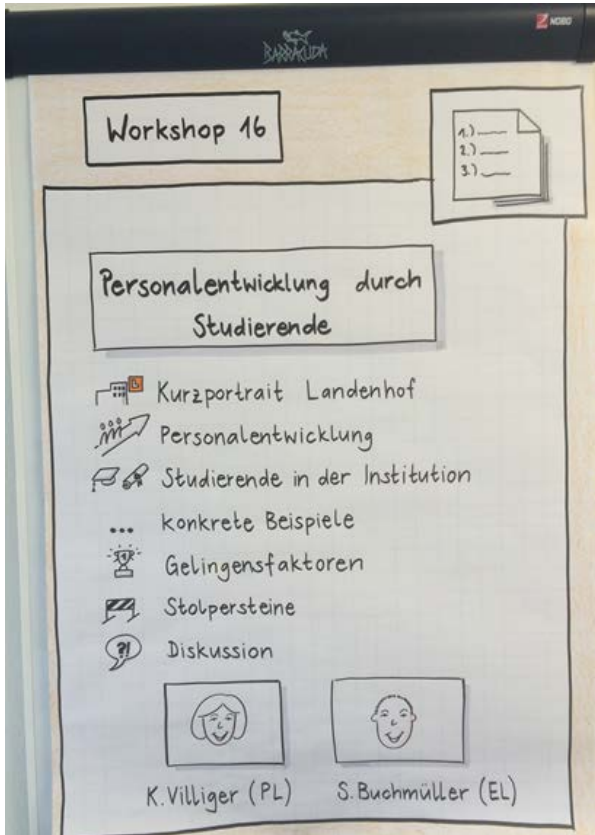 NOBO
BARRACUDA
Workshop 16
1.)
2.)
3.)
Personalentwicklung durch
Studierende
Kurzportrait Landenhof
Personalentwicklung
Studierende in der Institution
... konkrete Beispiele
Gelingensfaktoren
Stolpersteine
?! Diskussion
K. Villiger (PL)
S. Buchmüller (EL)